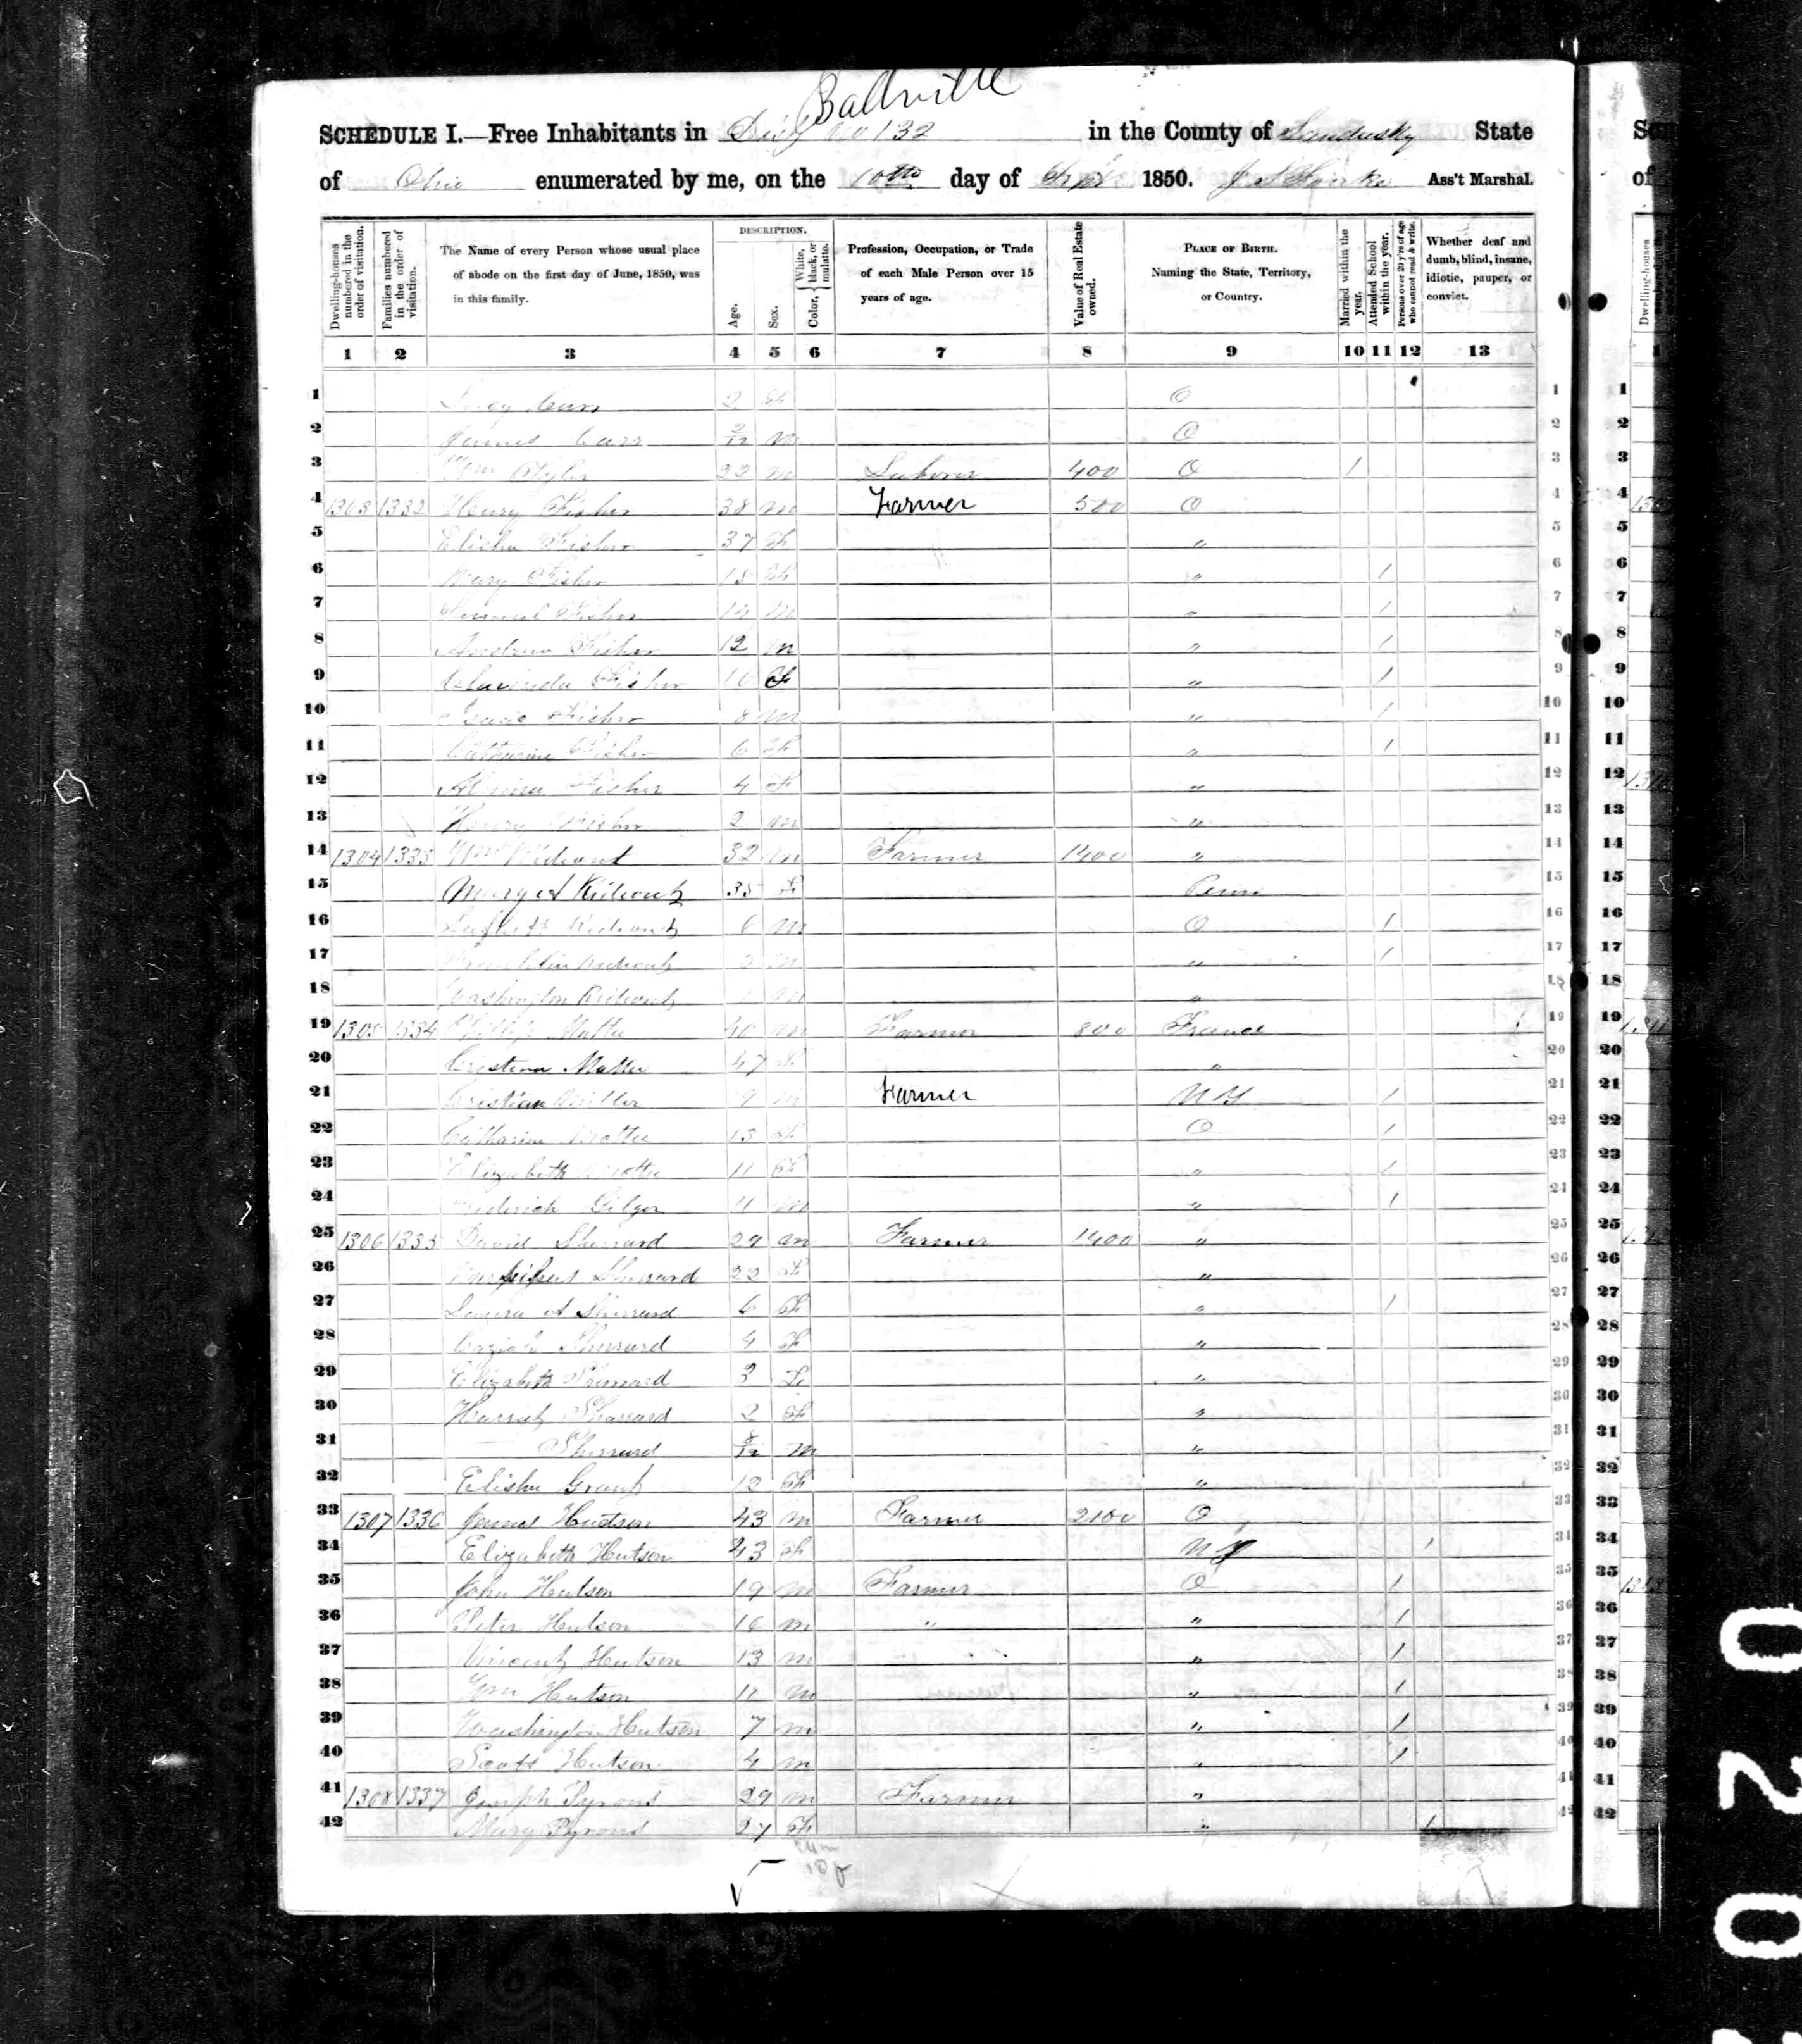 Ballville
SCHEDULE I.—Free Inhabitants in Dist No 132 in the County of Sandusky State
of Ohio enumerated by me, on the 10th day of Sept 1850. Ass't Marshal.
Dwelling-houses numbered in the order of visitation.
Families numbered in the order of visitation.
The Name of every Person whose usual place of abode on the first day of June, 1850, was in this family.
DESCRIPTION.
Age.
Sex.
Color, White, black, or mulatto.
Profession, Occupation, or Trade of each Male Person over 15 years of age.
Value of Real Estate owned.
PLACE OF BIRTH. Naming the State, Territory, or Country.
Married within the year.
Attended School within the year.
Persons over 20 y'rs of age who cannot read & write.
Whether deaf and dumb, blind, insane, idiotic, pauper, or convict.
1 2 3 4 5 6 7 8 9 10 11 12 13
1 2 F O 1
2 James Carr 2/12 m O 2
3 Wm 23 m Laborer 400 O / 3
4 1303 1332 Henry Fisher 38 m Farmer 500 O 4
5 Elisha Fisher 37 F " 5
6 Mary Fisher 15 F " / 6
7 Samuel Fisher 14 m " / 7
8 Andrew Fisher 12 m " / 8
9 Clarinda Fisher 10 F " / 9
10 Isaac Fisher 8 m " / 10
11 Catharine Fisher 6 F " / 11
12 Almira Fisher 4 F " 12
13 Henry Fisher 2 m " 13
14 1304 1333 Wm Rideout 32 m Farmer 1400 " 14
15 Mary A Rideout 35 F Penn 15
16 Rideout 6 m O / 16
17 Franklin Rideout 3 m " / 17
18 Washington Rideout 1 m " 18
19 1305 1334 Phillip Mattie 40 m Farmer 800 France 19
20 Cristena Mattie 47 F " 20
21 Cristian Miller 19 m Farmer N Y / 21
22 Catharine Mattie 13 F O / 22
23 Elizabeth Mattie 11 F " / 23
24 Frederick Gilger 11 m " / 24
25 1306 1335 David Sherrard 29 m Farmer 1400 " 25
26 Sherrard 22 F " 26
27 Laura A Sherrard 6 F " / 27
28 Sherrard 4 F " 28
29 Elizabeth Sherrard 3 F " 29
30 Harriet Sherrard 2 F " 30
31 — Sherrard 8/12 m " 31
32 Elisha Grant 12 F " 32
33 1307 1336 James Hutson 43 m Farmer 2100 O 33
34 Elizabeth Hutson 43 F N Y / 34
35 John Hutson 19 m Farmer O / 35
36 Peter Hutson 16 m " " / 36
37 Vincent Hutson 13 m " / 37
38 Wm Hutson 11 m " / 38
39 Washington Hutson 7 m " / 39
40 Scott Hutson 4 m " / 40
41 1308 1337 Joseph Pyrons 29 m Farmer " 41
42 Mary Pyrons 27 F " / 42
020